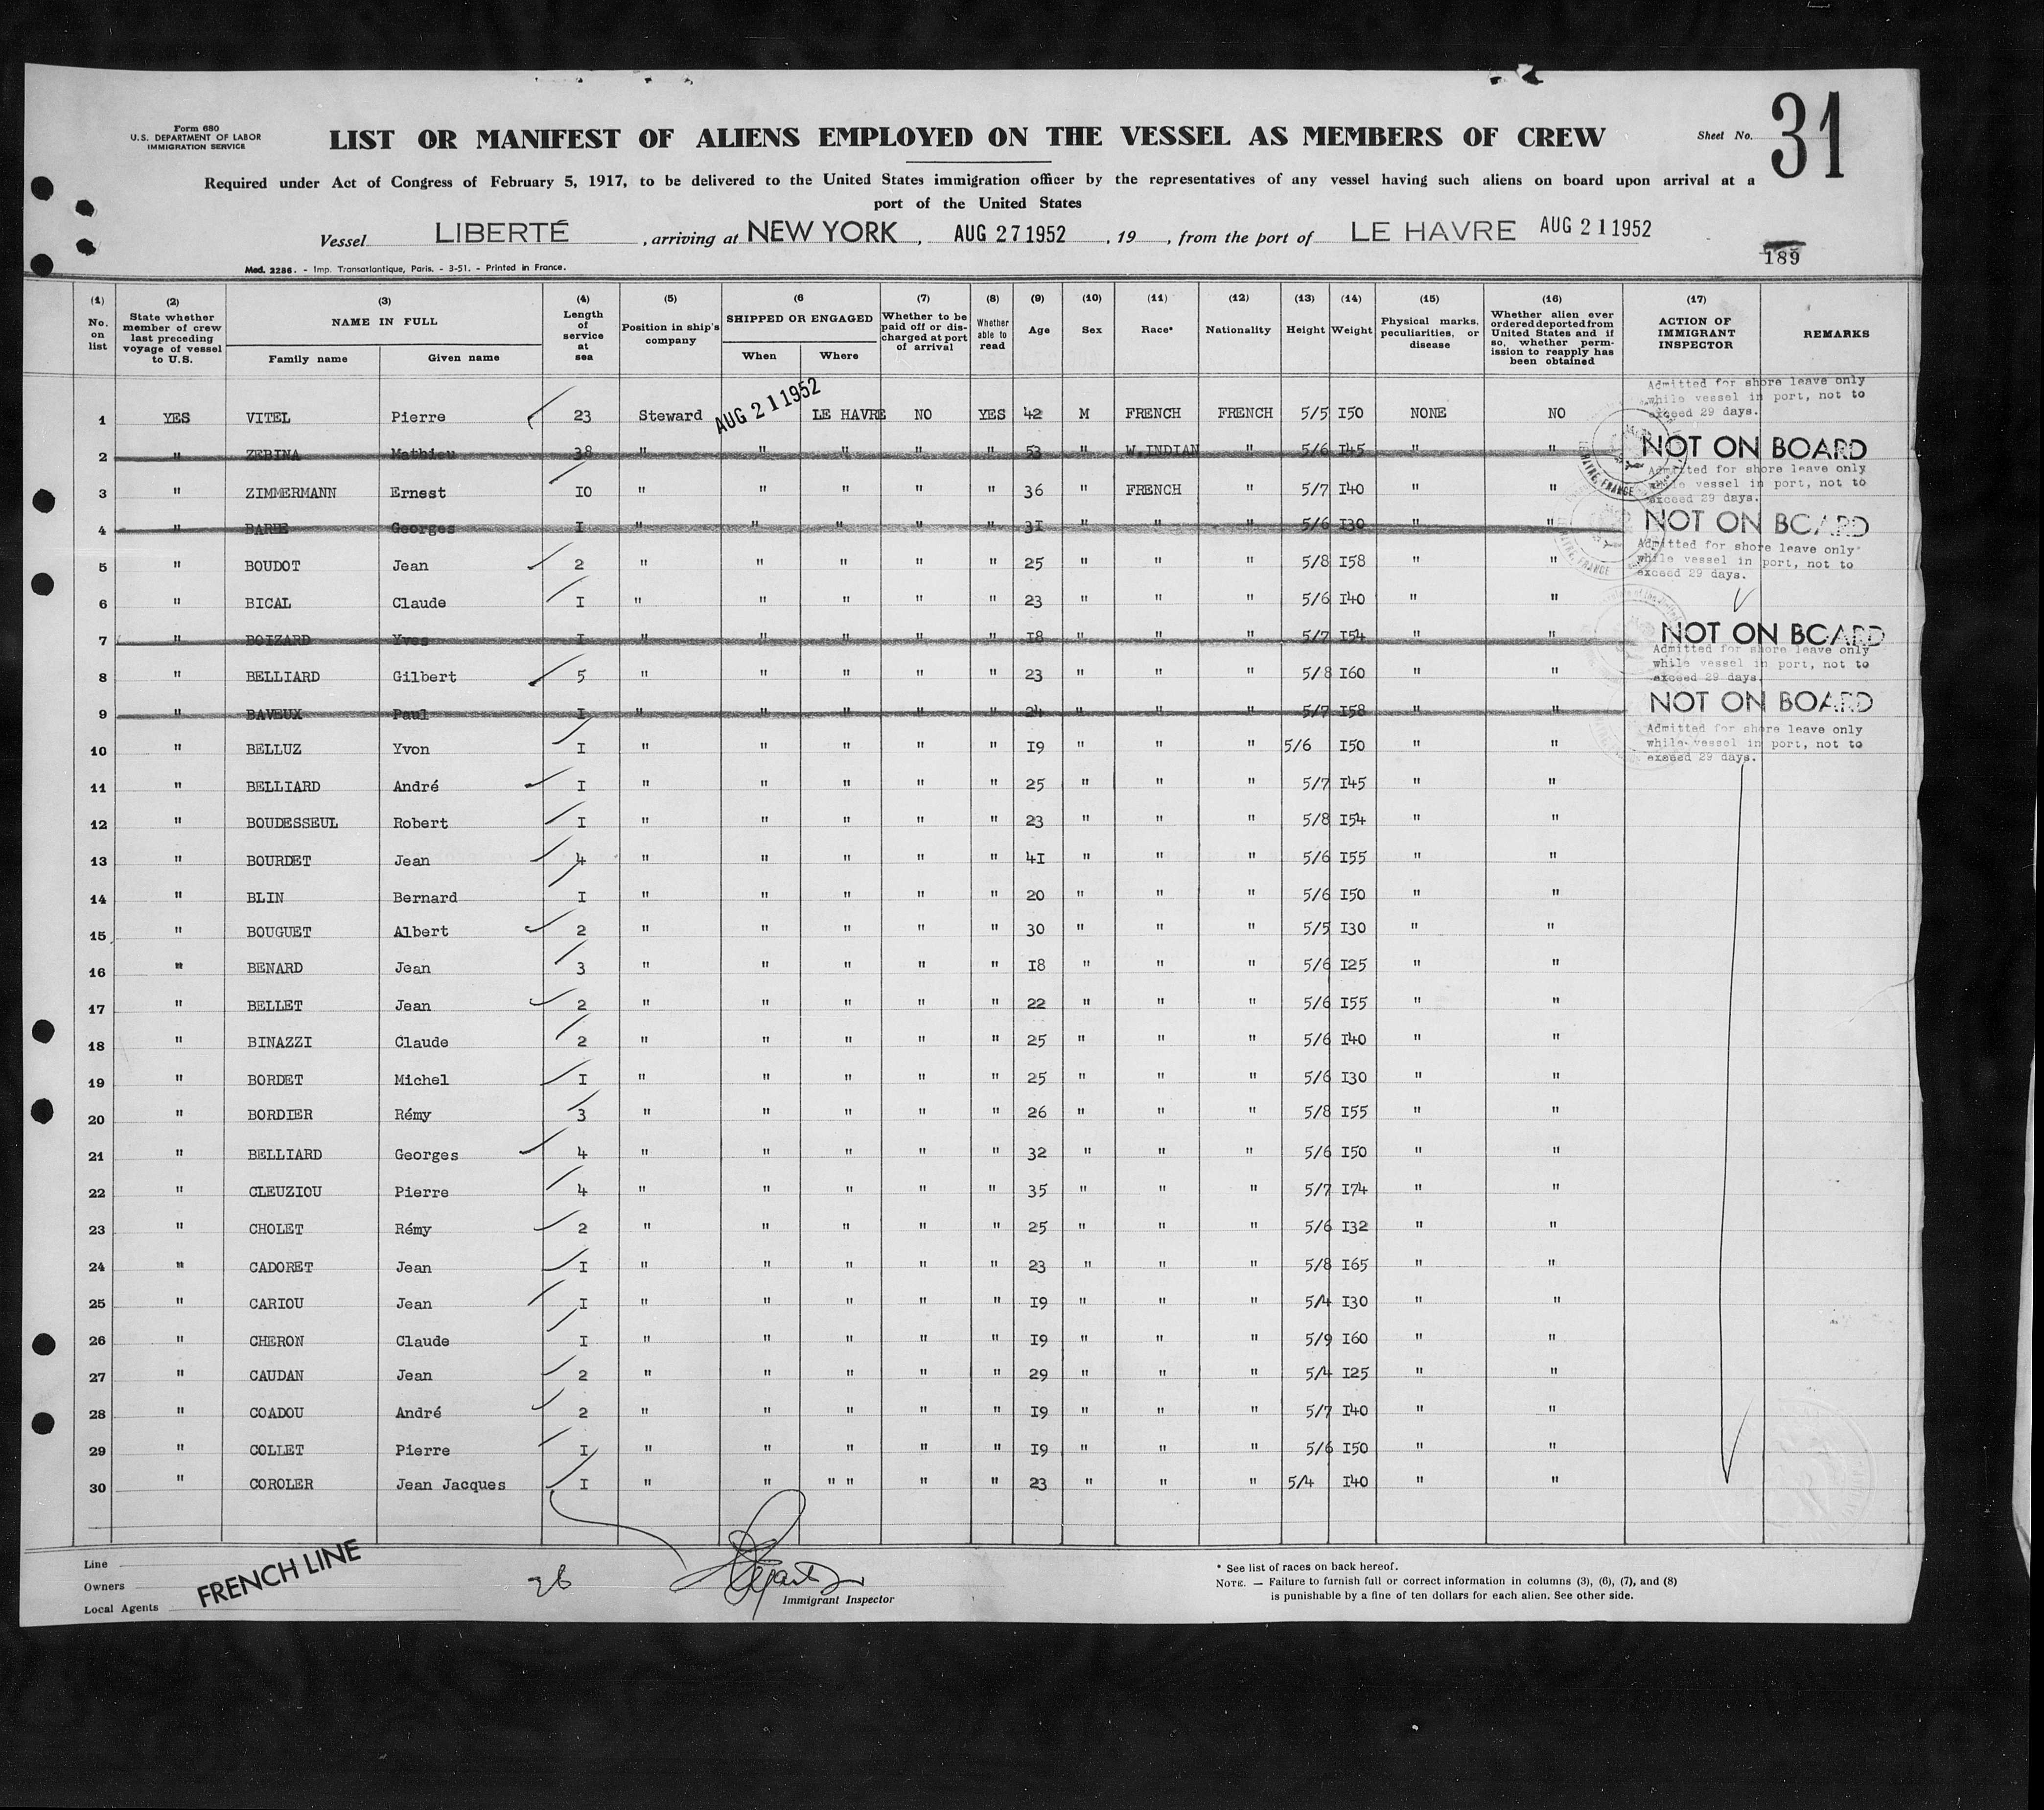 Form 680
U.S. DEPARTMENT OF LABOR
IMMIGRATION SERVICE
LIST OR MANIFEST OF ALIENS EMPLOYED ON THE VESSEL AS MEMBERS OF CREW
Sheet No. 31
Required under Act of Congress of February 5, 1917, to be delivered to the United States immigration officer by the representatives of any vessel having such aliens on board upon arrival at a
port of the United States
Vessel LIBERTÉ, arriving at NEW YORK, AUG 27 1952, 19, from the port of LE HAVRE AUG 21 1952
189
Mod. 2286. - Imp. Transatlantique, Paris. - 3-51. - Printed in France.
(1) No. on list (2) State whether member of crew last preceding voyage of vessel to U.S. (3) NAME IN FULL Family name Given name (4) Length of service at sea (5) Position in ship's company (6 SHIPPED OR ENGAGED When Where (7) Whether to be paid off or discharged at port of arrival (8) Whether able to read (9) Age (10) Sex (11) Race* (12) Nationality (13) Height (14) Weight (15) Physical marks, peculiarities, or disease (16) Whether alien ever ordered deported from United States and if so, whether permission to reapply has been obtained (17) ACTION OF IMMIGRANT INSPECTOR REMARKS
1 YES VITEL Pierre 23 Steward AUG 21 1952 LE HAVRE NO YES 42 M FRENCH FRENCH 5/5 I50 NONE NO Admitted for shore leave only while vessel in port, not to exceed 29 days.
2 " ZEBINA Mathieu 38 " " " " " 53 " W.INDIAN " 5/6 I45 " " NOT ON BOARD
3 " ZIMMERMANN Ernest I0 " " " " " 36 " FRENCH " 5/7 I40 " " Admitted for shore leave only while vessel in port, not to exceed 29 days.
4 " BARIE Georges I " " " " " 3I " " " 5/6 I30 " " NOT ON BOARD
5 " BOUDOT Jean 2 " " " " " 25 " " " 5/8 I58 " " Admitted for shore leave only while vessel in port, not to exceed 29 days.
6 " BICAL Claude I " " " " " 23 " " " 5/6 I40 " "
7 " BOIZARD Yves I " " " " " I8 " " " 5/7 I54 " " NOT ON BOARD
8 " BELLIARD Gilbert 5 " " " " " 23 " " " 5/8 I60 " " Admitted for shore leave only while vessel in port, not to exceed 29 days.
9 " BAVEUX Paul I " " " " " 24 " " " 5/7 I58 " " NOT ON BOARD
10 " BELLUZ Yvon I " " " " " I9 " " " 5/6 I50 " " Admitted for shore leave only while vessel in port, not to exceed 29 days.
11 " BELLIARD André I " " " " " 25 " " " 5/7 I45 " "
12 " BOUDESSEUL Robert I " " " " " 23 " " " 5/8 I54 " "
13 " BOURDET Jean 4 " " " " " 4I " " " 5/6 I55 " "
14 " BLIN Bernard I " " " " " 20 " " " 5/6 I50 " "
15 " BOUGUET Albert 2 " " " " " 30 " " " 5/5 I30 " "
16 " BENARD Jean 3 " " " " " I8 " " " 5/6 I25 " "
17 " BELLET Jean 2 " " " " " 22 " " " 5/6 I55 " "
18 " BINAZZI Claude 2 " " " " " 25 " " " 5/6 I40 " "
19 " BORDET Michel I " " " " " 25 " " " 5/6 I30 " "
20 " BORDIER Rémy 3 " " " " " 26 " " " 5/8 I55 " "
21 " BELLIARD Georges 4 " " " " " 32 " " " 5/6 I50 " "
22 " CLEUZIOU Pierre 4 " " " " " 35 " " " 5/7 I74 " "
23 " CHOLET Rémy 2 " " " " " 25 " " " 5/6 I32 " "
24 " CADORET Jean I " " " " " 23 " " " 5/8 I65 " "
25 " CARIOU Jean I " " " " " I9 " " " 5/4 I30 " "
26 " CHERON Claude I " " " " " I9 " " " 5/9 I60 " "
27 " CAUDAN Jean 2 " " " " " 29 " " " 5/4 I25 " "
28 " COADOU André 2 " " " " " I9 " " " 5/7 I40 " "
29 " COLLET Pierre I " " " " " I9 " " " 5/6 I50 " "
30 " COROLER Jean Jacques I " " " " " " 23 " " " 5/4 I40 " "
Line
Owners
Local Agents
FRENCH LINE
26
Immigrant Inspector
* See list of races on back hereof.
NOTE. — Failure to furnish full or correct information in columns (3), (6), (7), and (8)
is punishable by a fine of ten dollars for each alien. See other side.